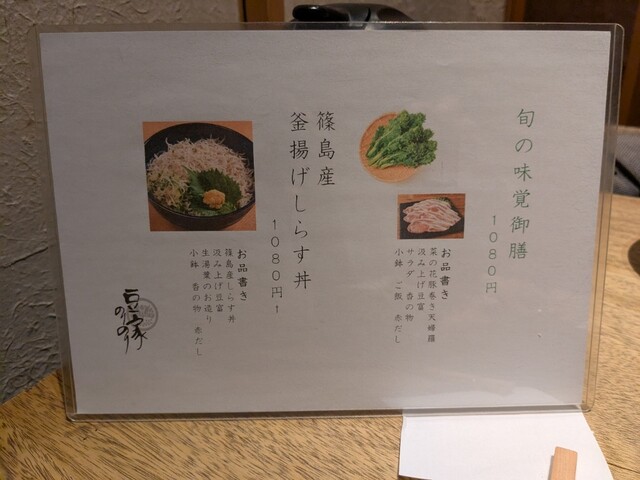 旬の味覚御膳
1080円
お品書き
菜の花豚巻き天婦羅
汲み上げ豆富
サラダ 香の物
小鉢 ご飯 赤だし
篠島産
釜揚げしらす丼
1080円
お品書き
篠島産しらす丼
汲み上げ豆富
生湯葉のお造り
小鉢 香の物 赤だし
豆家
ののり